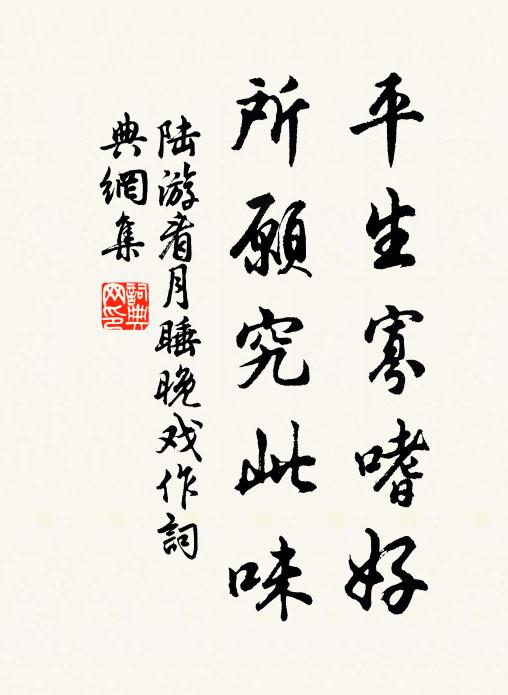 平生寡嗜好
所願究此味
陆游看月睡晚戏作詞
典網集
詞典
网印